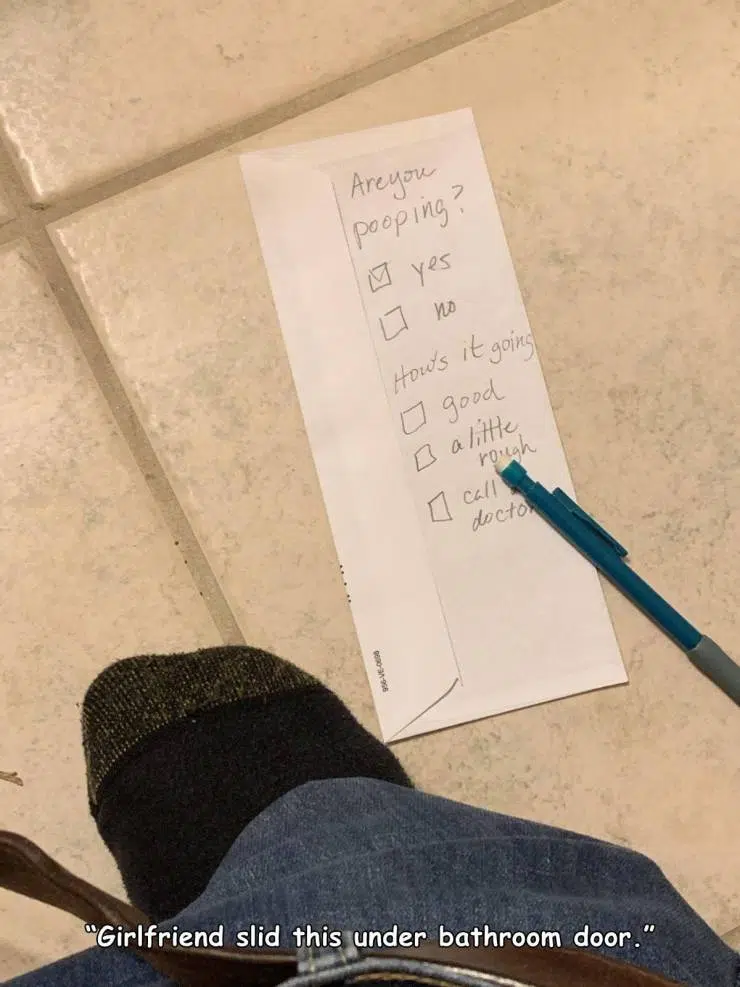 Are you
pooping?
yes
no
How's it going
good
a little
rough
call
doctor
956-VE-0698
"Girlfriend slid this under bathroom door."